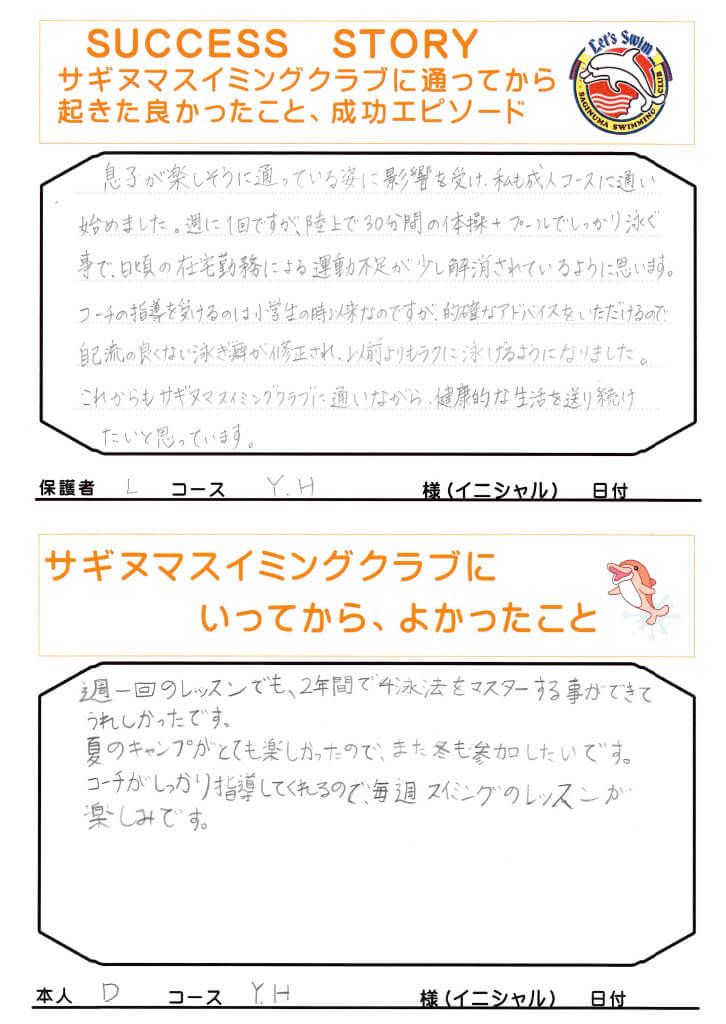 SUCCESS STORY
サギヌマスイミングクラブに通ってから
起きた良かったこと、成功エピソード
Let's Swim
SAGINUMA SWIMMING CLUB
息子が楽しそうに通っている姿に影響を受け、私も成人コースに通い
始めました。週に1回ですが、陸上で30分間の体操+プールでしっかり泳ぐ
事で、日頃の在宅勤務による運動不足が少し解消されているように思います。
コーチの指導を受けるのは小学生の時以来なのですが、的確なアドバイスをいただけるので
自己流の良くない泳ぎ癖が修正され、以前よりもラクに泳げるようになりました。
これからもサギヌマスイミングクラブに通いながら、健康的な生活を送り続け
たいと思っています。
保護者 L コース Y.H 様(イニシャル) 日付
サギヌマスイミングクラブに
いってから、よかったこと
週一回のレッスンでも、2年間で4泳法をマスターする事ができて
うれしかったです。
夏のキャンプがとても楽しかったので、また冬も参加したいです。
コーチがしっかり指導してくれるので、毎週スイミングのレッスンが
楽しみです。
本人 D コース Y.H 様(イニシャル) 日付